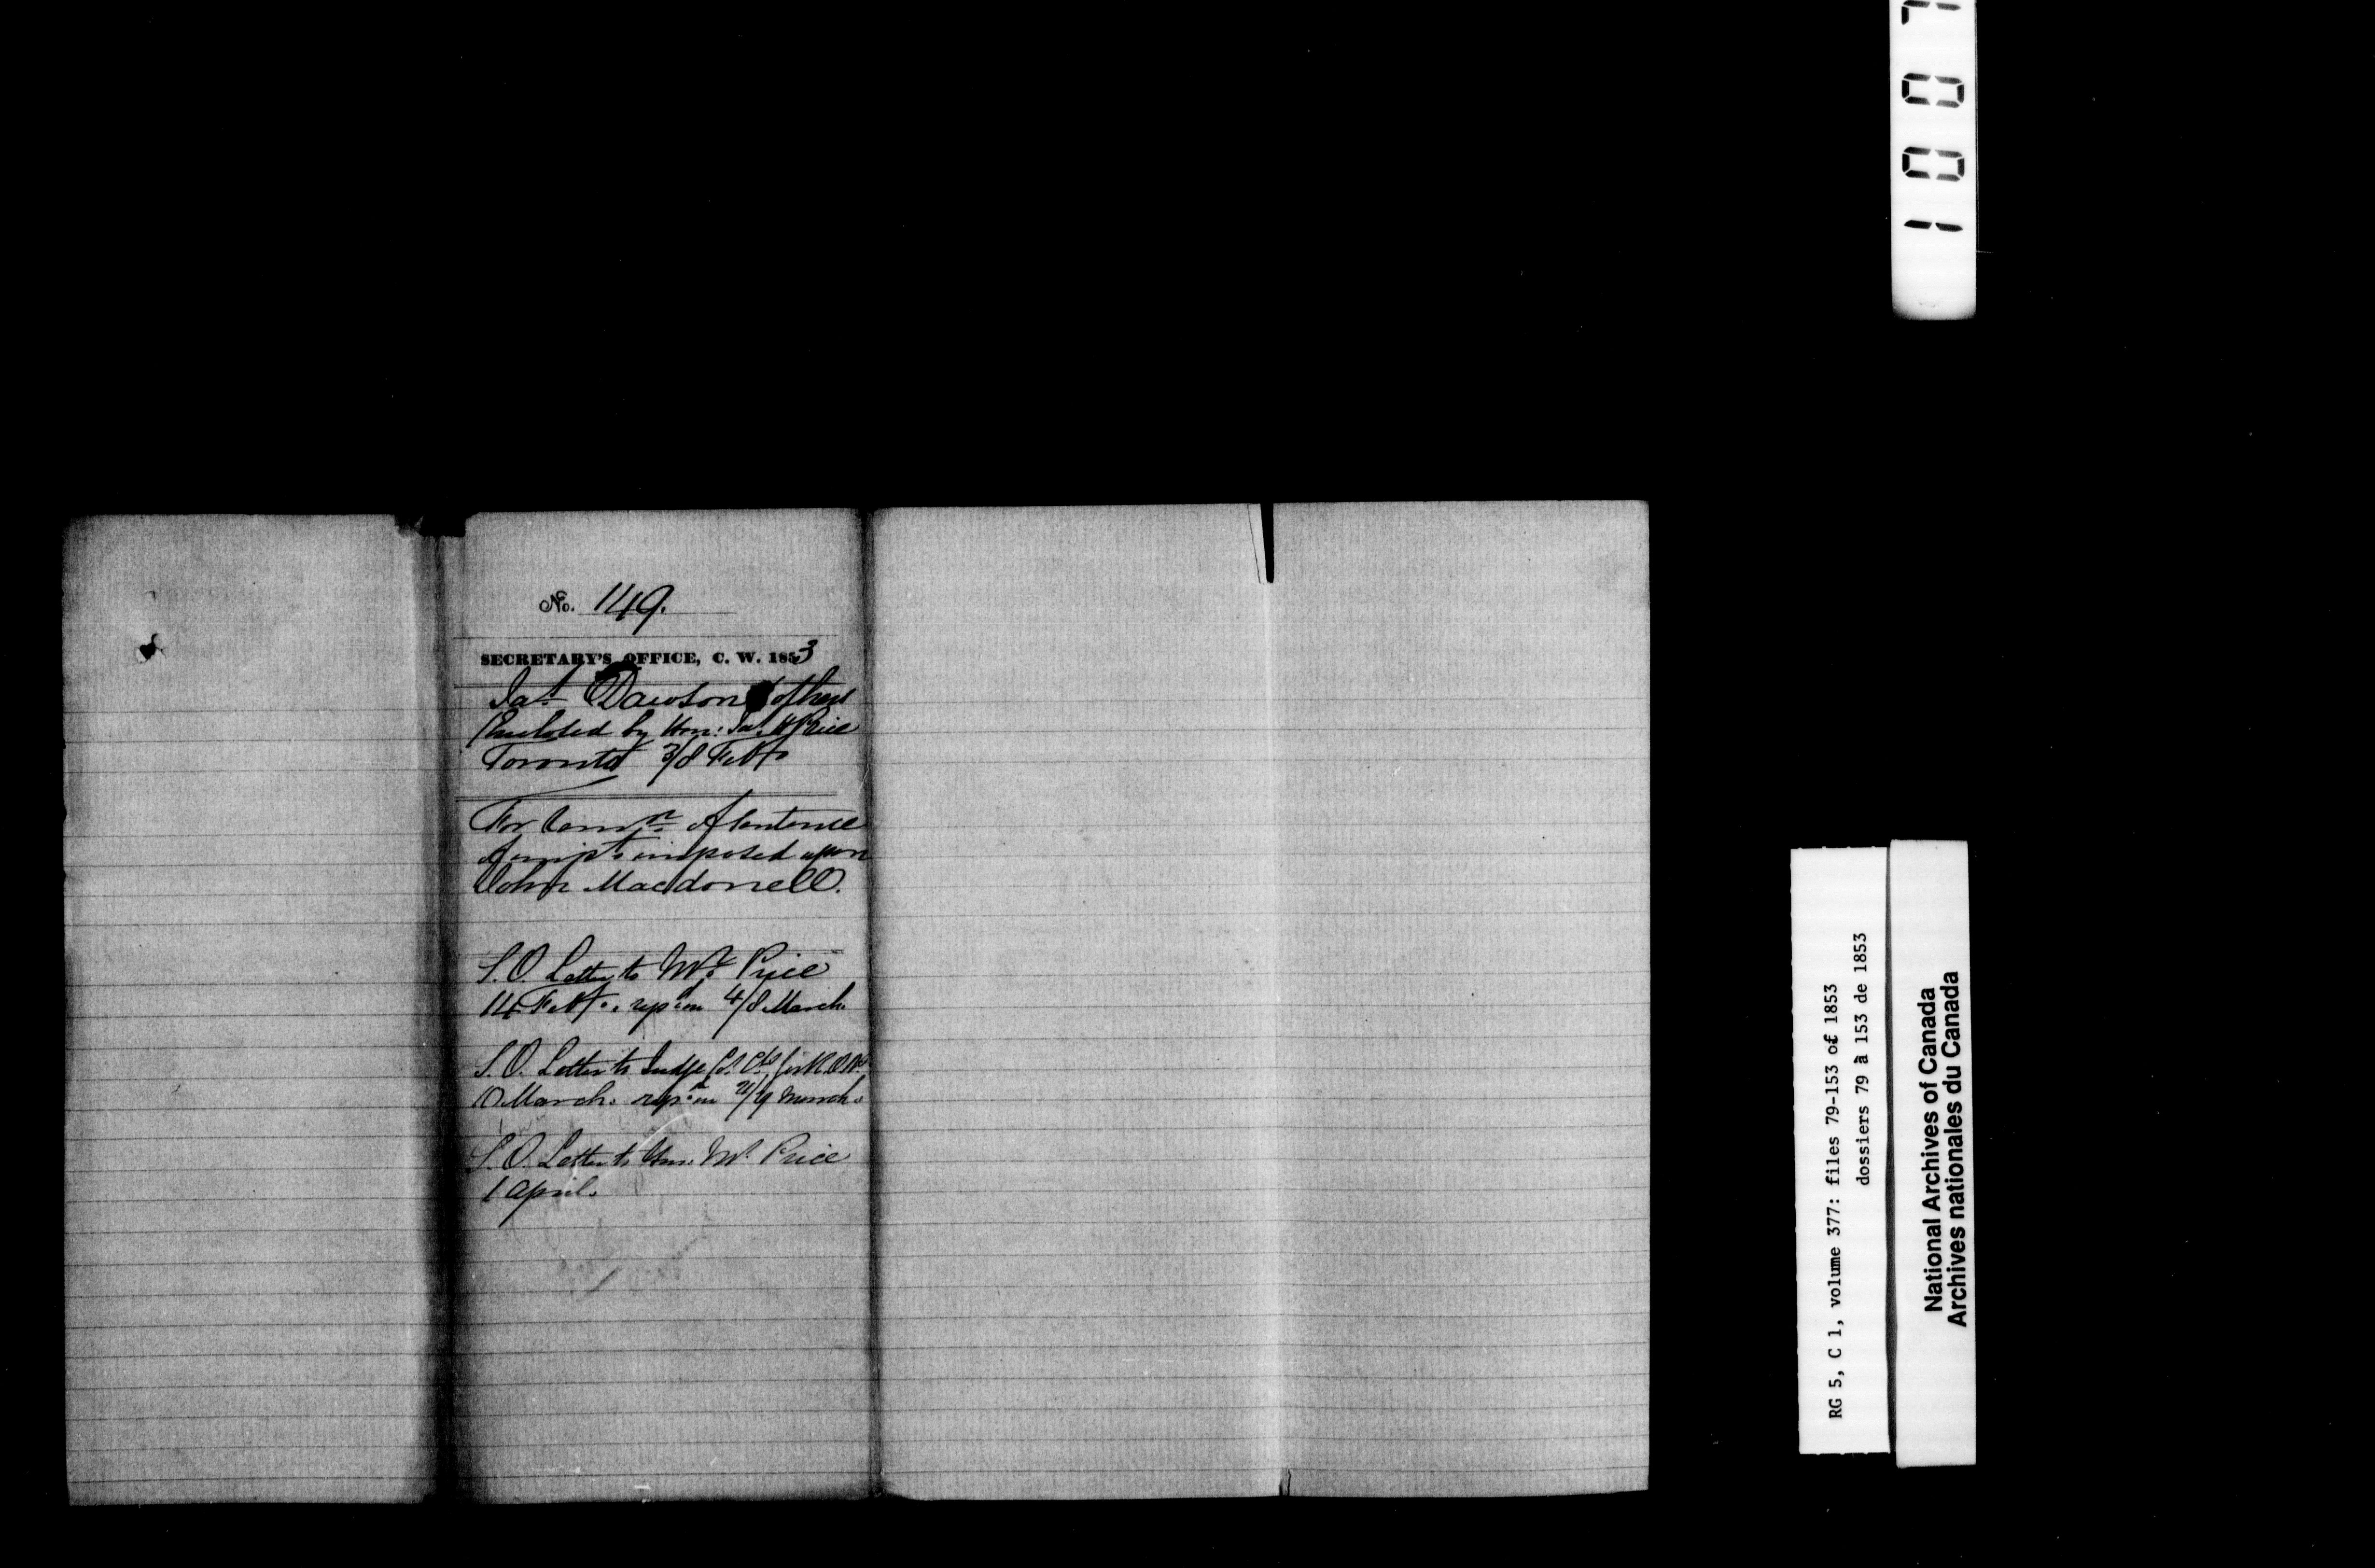 No. 149.
SECRETARY'S OFFICE, C. W. 1853
Jas. Dawson & others
Enclosed by Hon: Jas. H Price
Toronto 3/8 Feby
For Commn. of Sentence
of impt. imposed upon
John Macdonell.
S.O. Letter to Mr. Price
14 Feby. 4/8 March
S.O. Letter to Judge Co. Ct.
10 March. March.
S.O. Letter to Hon. Mr. Price
1 April.
1007
RG 5, C 1, volume 377: files 79-153 of 1853
dossiers 79 à 153 de 1853
National Archives of Canada
Archives nationales du Canada